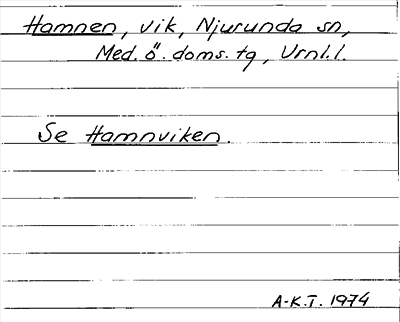 Hamnen, vik, Njurunda sn,
Med. ö. doms. tg, Urnl.l.
Se Hamnviken.
A-K.T. 1974